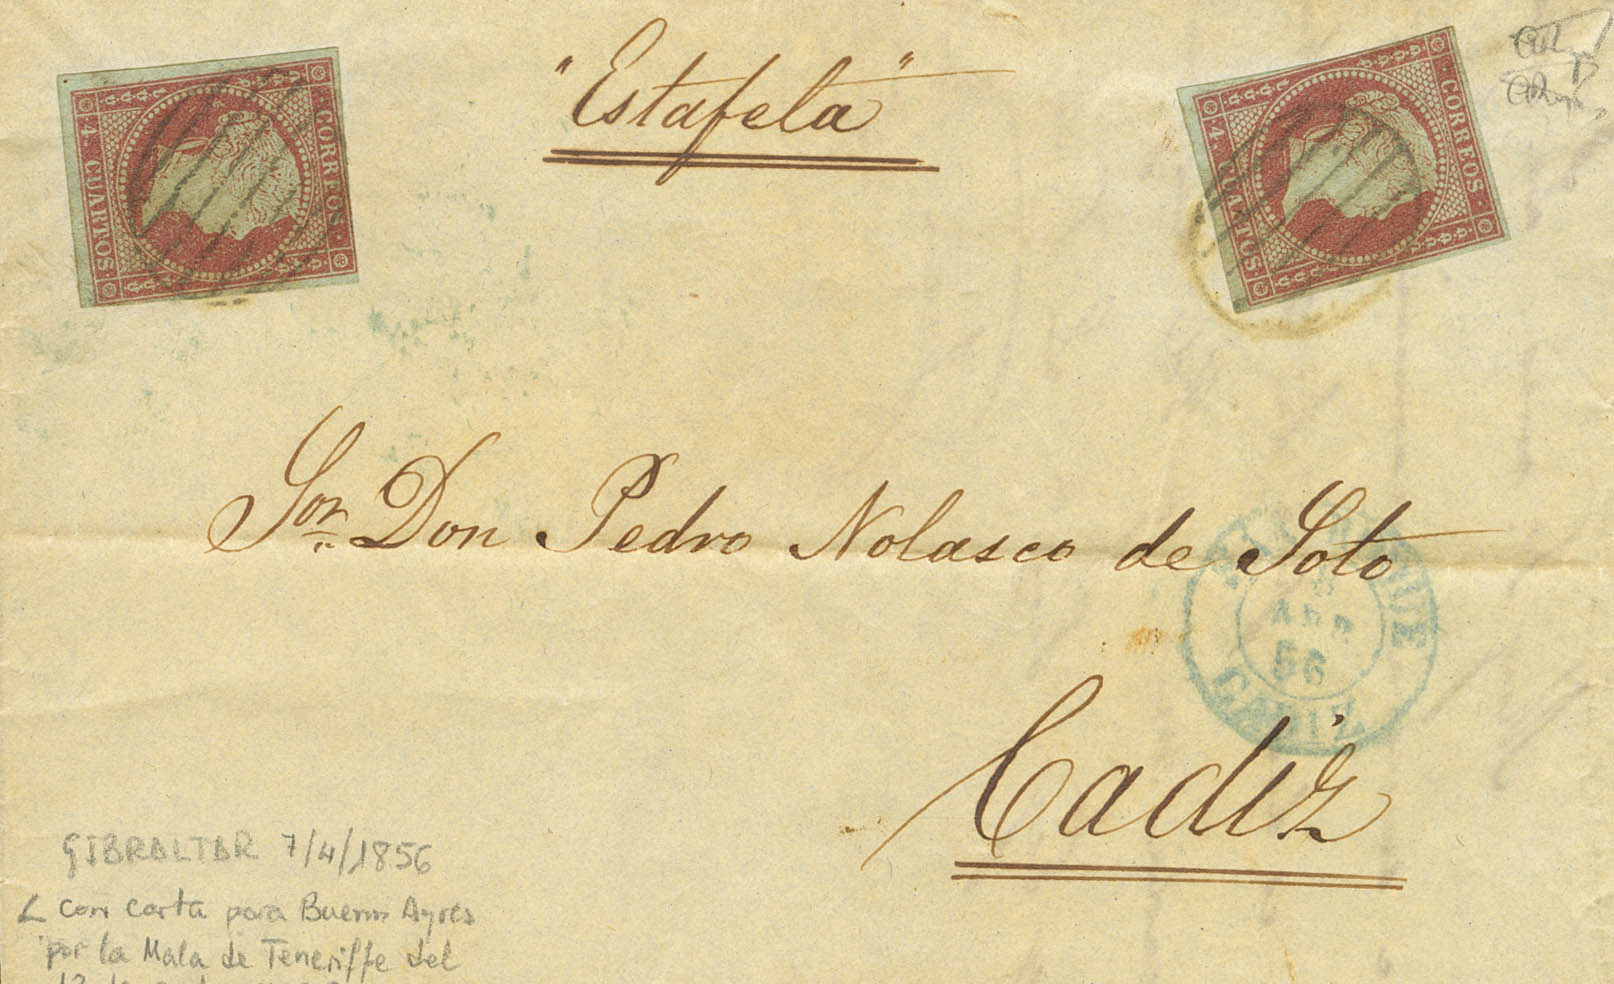 4 CUARTOS.
CORREOS.
"Estafeta"
4 CUARTOS
CORREOS.
Sor. Don Pedro Nolasco de Soto
ABR
56
CADIZ
Cadiz
GIBRALTAR 7/4/1856
con carta para Buenos Ayres
por la Mala de Teneriffe del